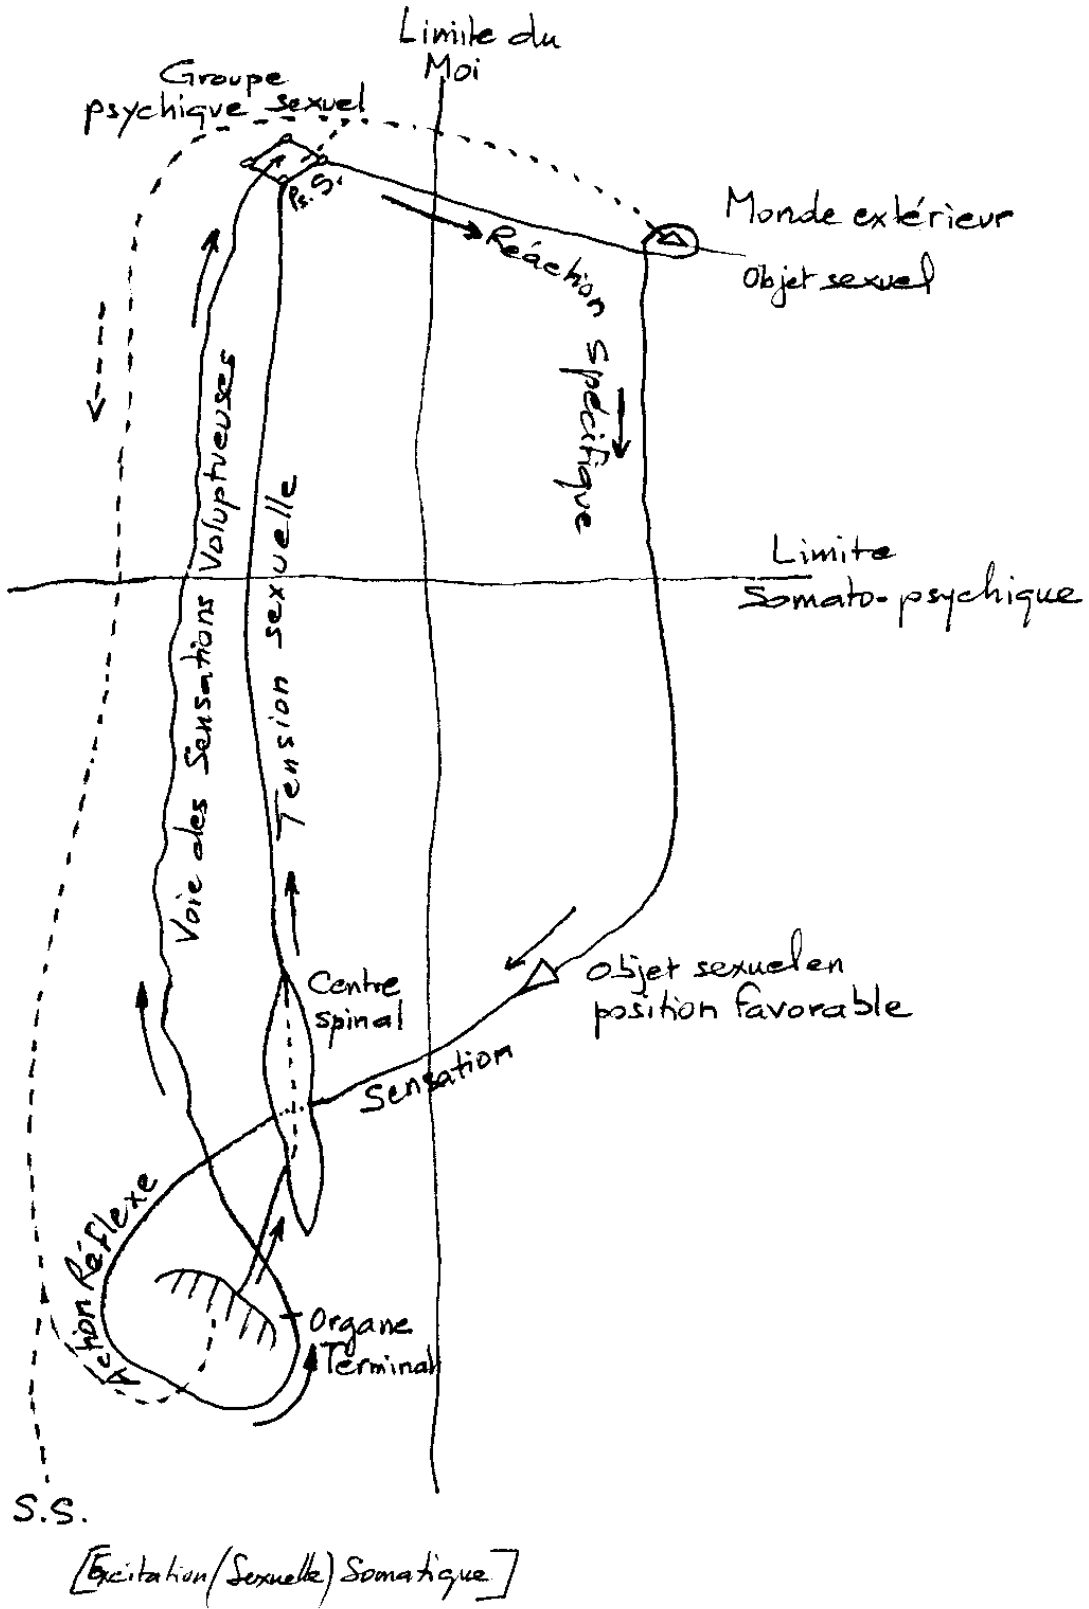 Limite du
Moi
Groupe
psychique sexuel
Ps. S.
Monde extérieur
Objet sexuel
Réaction Spécifique
Voie des Sensations Voluptueuses
Tension sexuelle
Limite
Somato-psychique
Centre
spinal
Objet sexuel en
position favorable
Sensation
Action Réflexe
Organe
Terminal
S.S.
[Excitation (Sexuelle) Somatique]